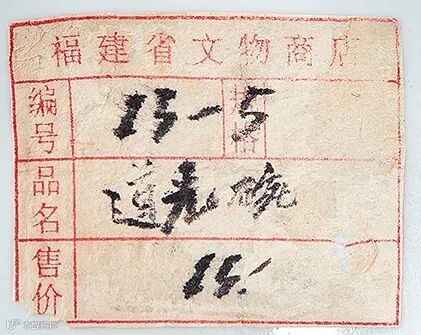 福建省文物商店
编号 13-5 规格
品名 道光碗
售价 15.